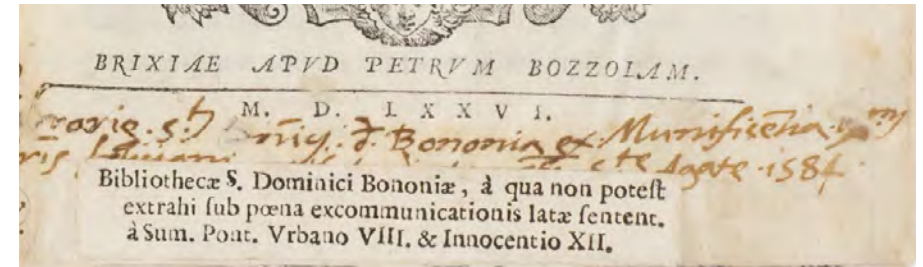 BRIXIAE APVD PETRVM BOZZOLAM.
M. D. LXXVI.
de Bononia ex Munificentia
1584
Bibliothecæ S. Dominici Bononiæ, à qua non potest
extrahi sub pœna excommunicationis latæ sentent.
à Sum. Pont. Vrbano VIII. & Innocentio XII.